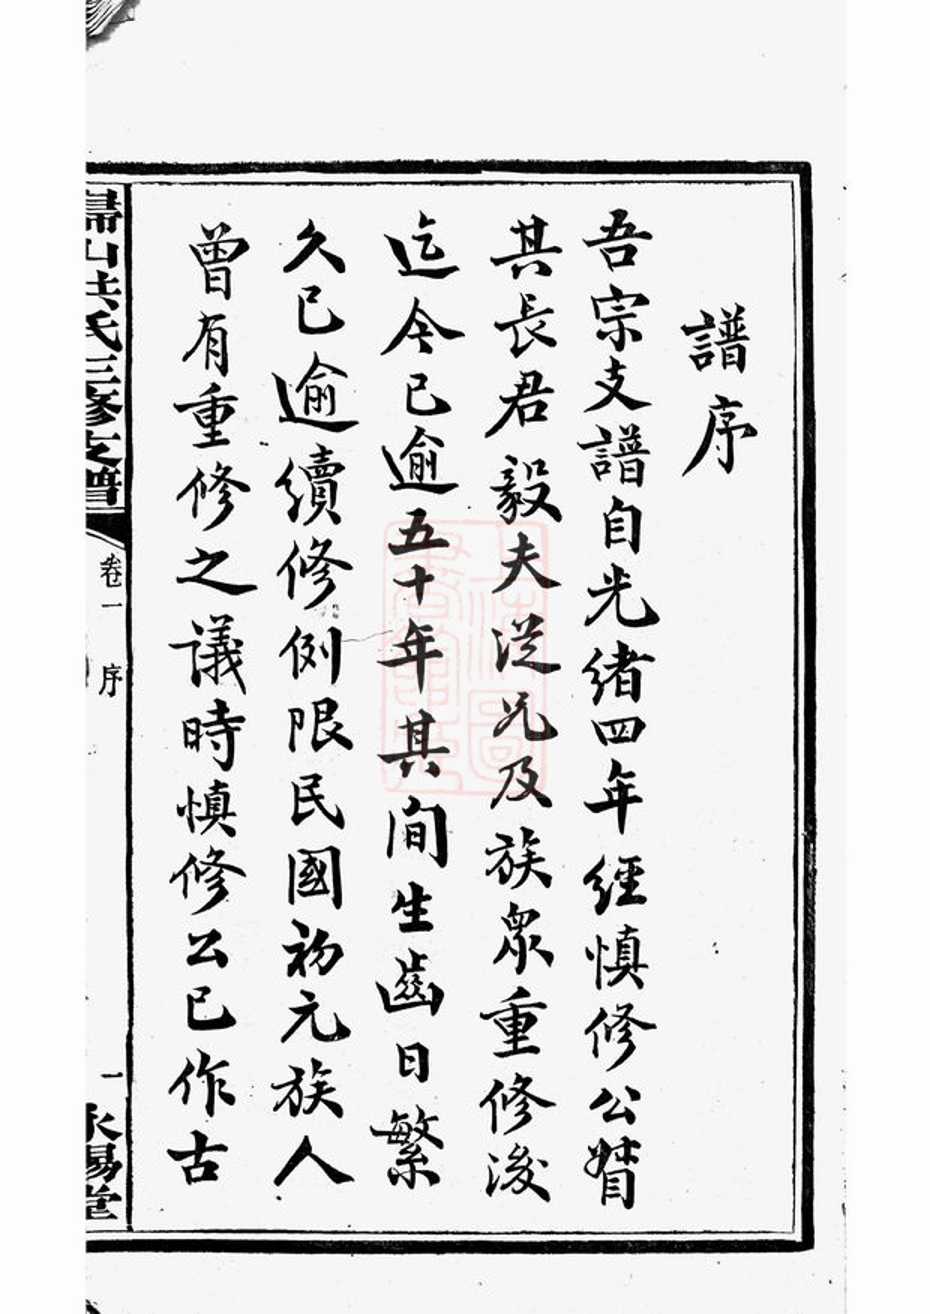 譜序
吾宗支譜自光緒四年經慎修公暨
其長君毅夫從兄及族眾重修後
迄今已逾五十年其間生齒日繁
久已逾續修例限民國初元族人
曾有重修之議時慎修公已作古
歸山洪氏三修支譜
卷一 序
一
永錫堂